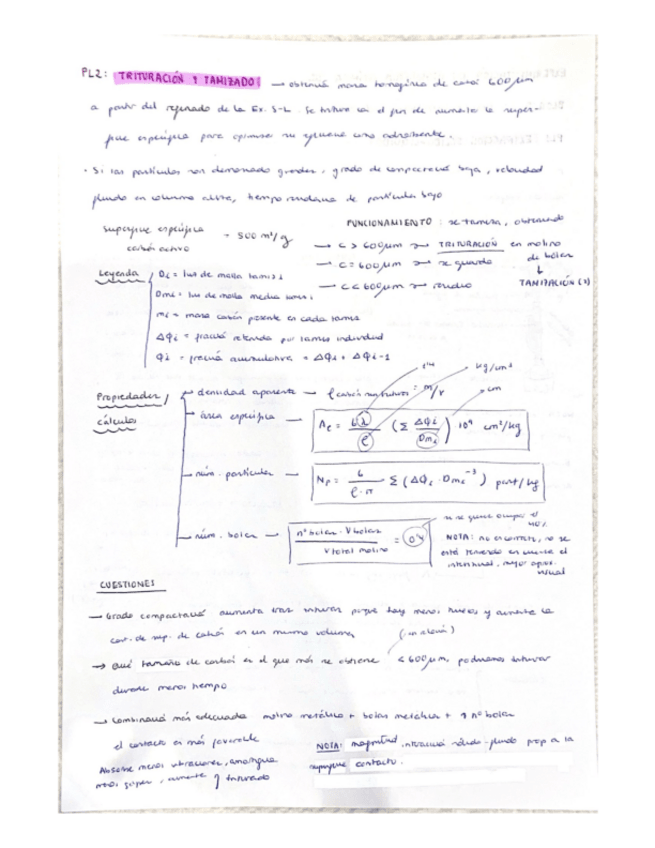 PL2: TRITURACIÓN Y TAMIZADO → obtención masa homogénea de carbón 600 μm
a partir del refinado de la Ex. S-L. Se tritura con el fin de aumentar la super-
ficie específica para optimizar su eficacia como adsorbente.
· Si las partículas son demasiado grandes, grado de compactación baja, velocidad
fluido en columna alta, tiempo residencia de partícula bajo
Superficie específica carbón activo → 500 m²/g
FUNCIONAMIENTO: se tamiza, obteniendo
→ C > 600 μm → TRITURACIÓN en molino de bolas
→ C = 600 μm → se guarda
→ C < 600 μm → residuo
TAMIZACIÓN (2)
Leyenda
Di = luz de malla tamiz i
Dmi = luz de malla media tamiz i
mi = masa carbón presente en cada tamiz
ΔΦi = fracción retenida por tamiz individual
Φi = fracción acumulativa = ΔΦi + ΔΦi-1
Propiedades, cálculos
→ densidad aparente → ρ = m/v
→ área específica → Ae = 6λ/ρ (Σ ΔΦi/Dmi) 10⁴ cm²/kg
kg/cm³
cm
→ núm. partículas → Np = 6/ρ·π Σ (ΔΦi · Dmi⁻³) part/kg
→ núm. bolas → nº bolas · V bolas / V total molino = 0'4
40%
NOTA: no es correcto, no se
está teniendo en cuenta el
intersticial, mejor
CUESTIONES
→ Grado compactación aumenta tras triturar porque hay menos huecos y aumenta la
cant. de sup. de carbón en un mismo volumen
→ Qué tamaño de carbón es el que más se obtiene < 600 μm, podríamos triturar
durante menos tiempo
→ Combinación más adecuada molino metálico + bolas metálicas + ↑ nº bolas
el contacto es más favorable
Absorbe menos vibraciones, amortigua
menos golpes, aumenta triturado
NOTA: magnitud interacción sólido-fluido prop a la
superficie contacto.